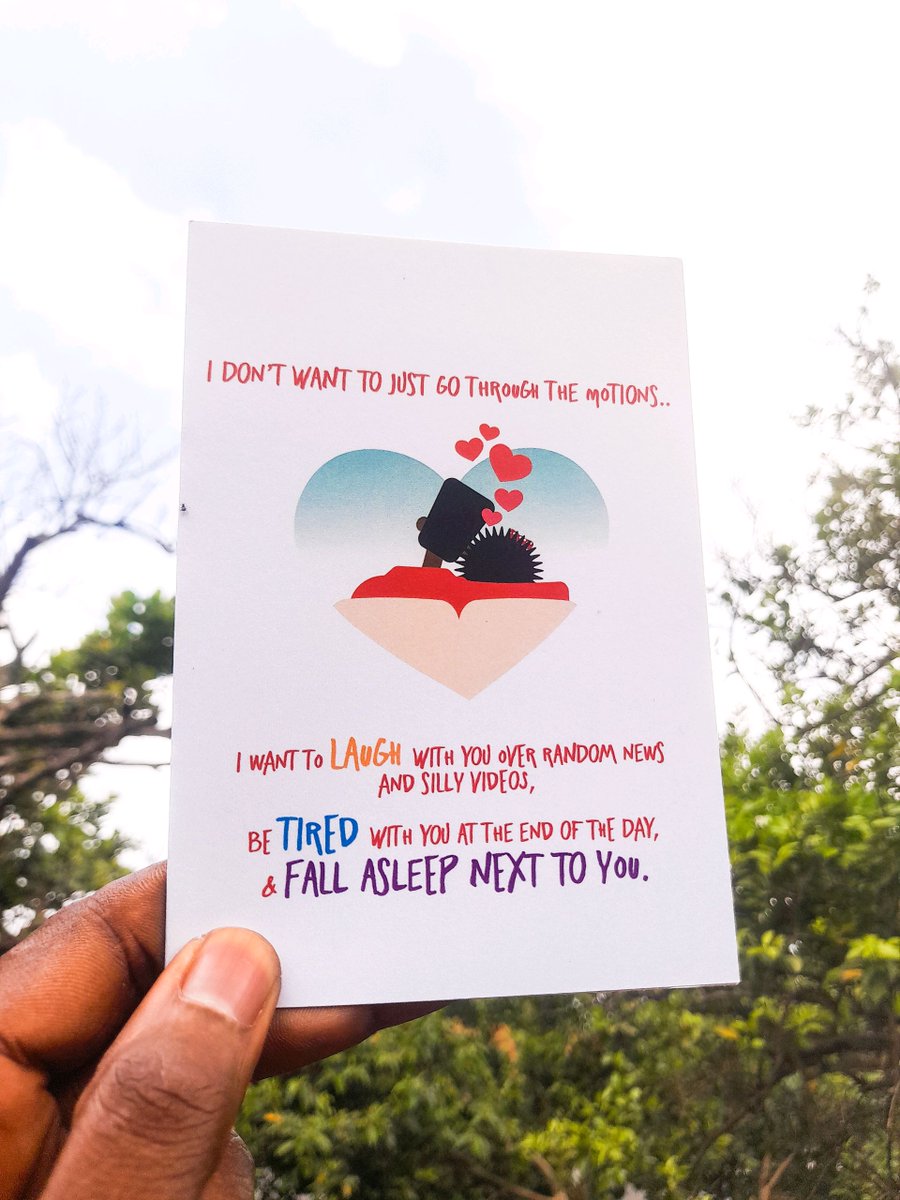 I DON'T WANT TO JUST GO THROUGH THE MOTIONS..
I WANT TO LAUGH WITH YOU OVER RANDOM NEWS
AND SILLY VIDEOS,
BE TIRED WITH YOU AT THE END OF THE DAY,
& FALL ASLEEP NEXT TO YOU.